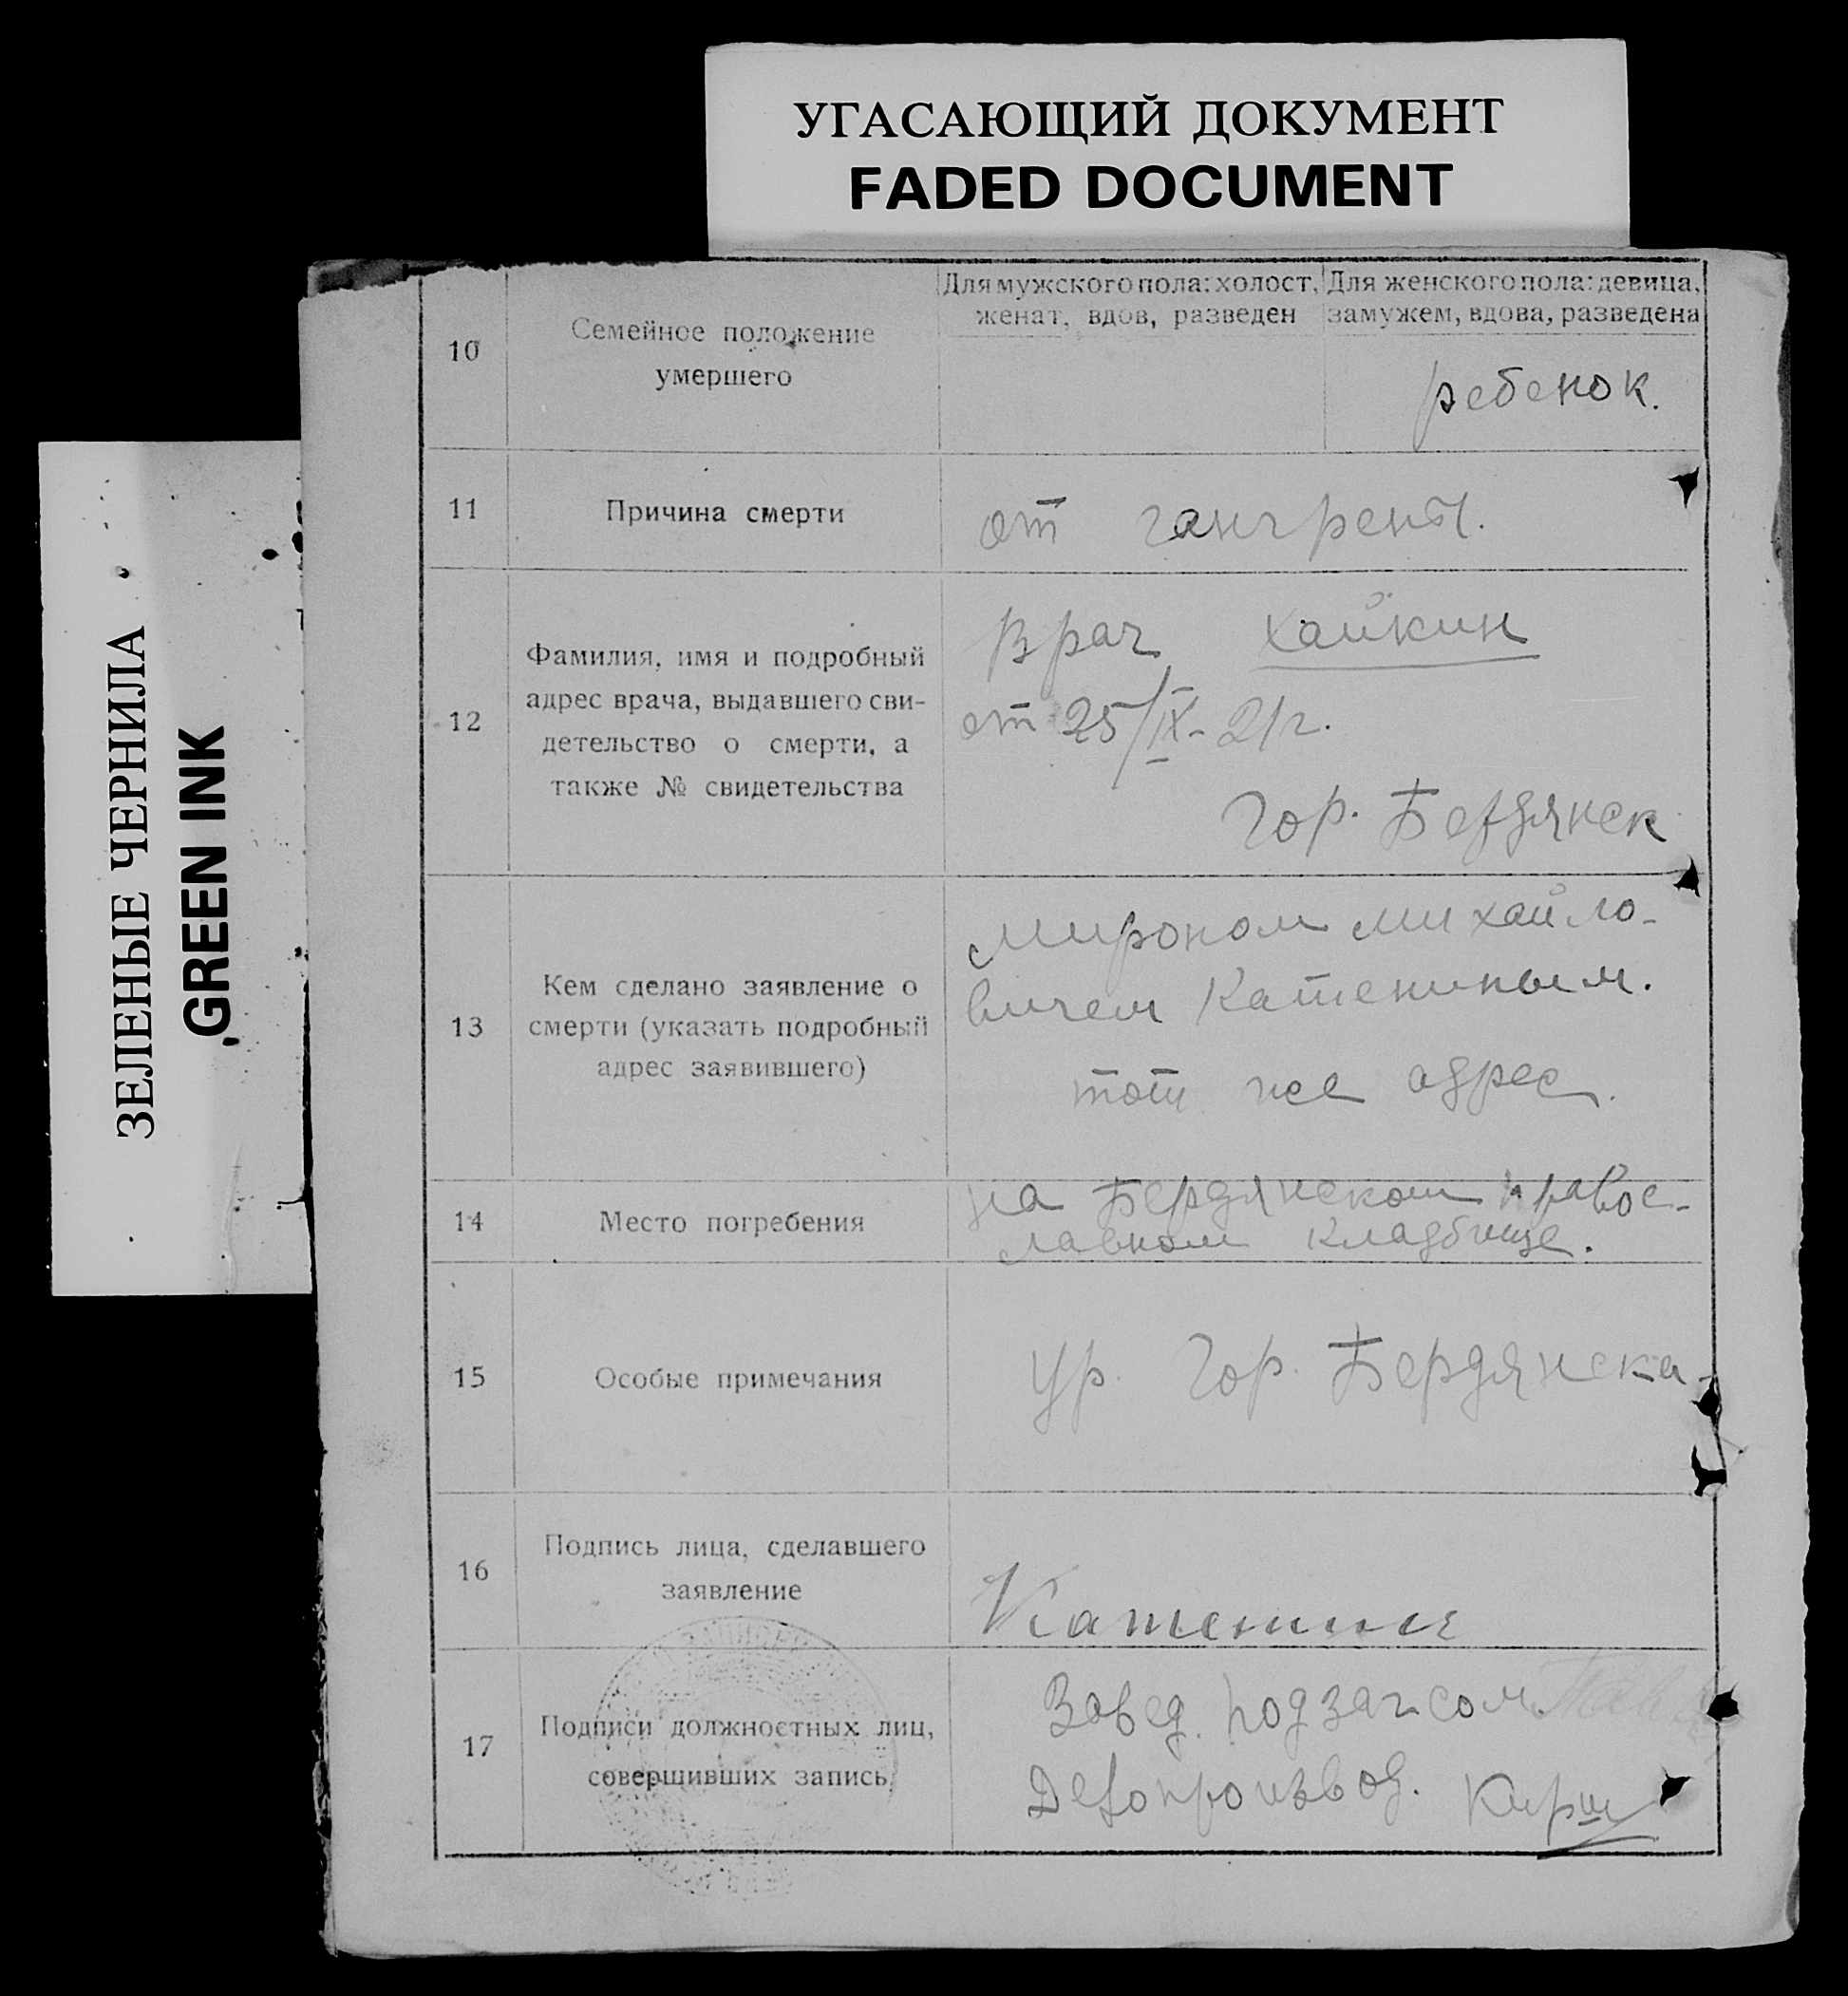 УГАСАЮЩИЙ ДОКУМЕНТ
FADED DOCUMENT
ЗЕЛЕНЫЕ ЧЕРНИЛА
GREEN INK
10
Семейное положение
умершего
Для мужского пола: холост,
женат, вдов, разведен
Для женского пола: девица,
замужем, вдова, разведена
ребенок.
11
Причина смерти
от гангрены.
12
Фамилия, имя и подробный
адрес врача, выдавшего сви-
детельство о смерти, а
также № свидетельства
Врач Хайкин
от 25/IX-21г.
Гор. Бердянск
13
Кем сделано заявление о
смерти (указать подробный
адрес заявившего)
Мироном Михайло-
вичем Катениным.
тот же адрес.
14
Место погребения
на Бердянском правос-
лавном кладбище.
15
Особые примечания
Ур. Гор. Бердянска
16
Подпись лица, сделавшего
заявление
Катенин
17
Подписи должностных лиц,
совершивших запись
Завед. подзагсом
Делопроизвод. Кирш